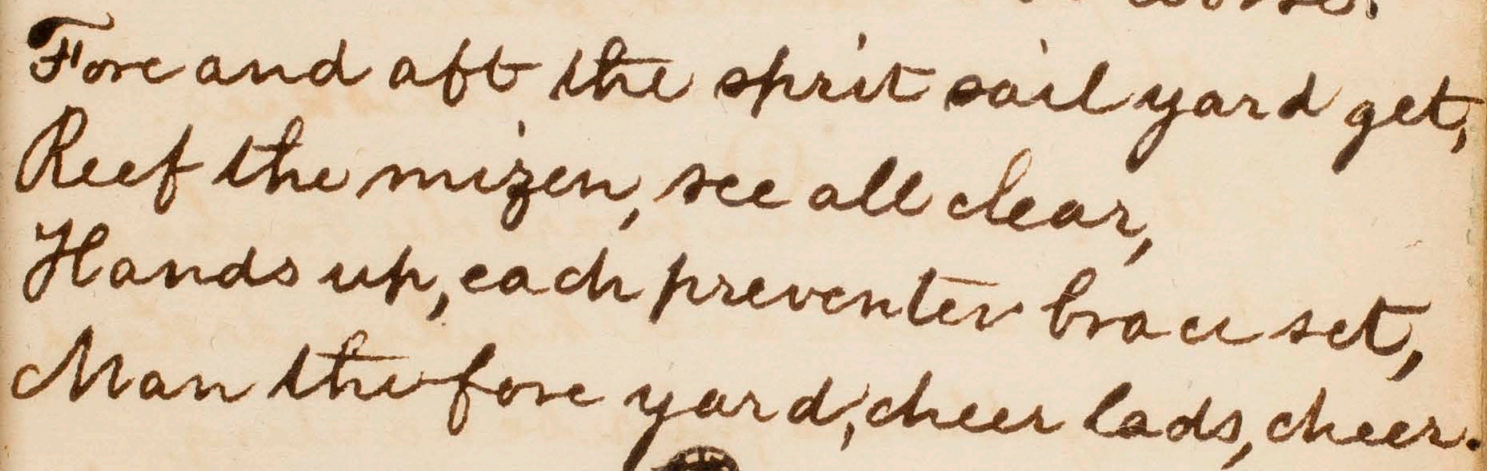 Fore and aft the sprit sail yard get,
Reef the mizen, see all clear,
Hands up, each preventer brace set,
Man the fore yard, cheer lads, cheer.